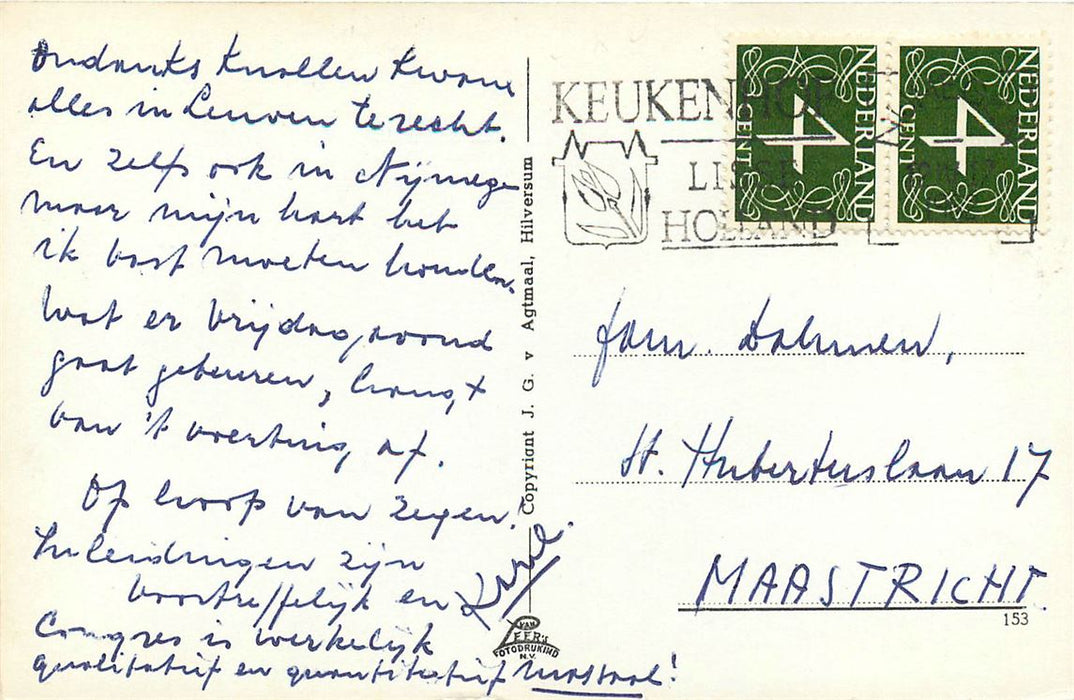 Ondanks Knollen kwam
alles in Leuven terecht.
En zelfs ook in Nijmegen
maar mijn hart heb
ik vast moeten houden.
Wat er Vrijdagavond
gaat gebeuren, hangt
van 't voertuig af.
Op hoop van zegen.
Inleidingen zijn
voortreffelijk en
Congres is werkelijk
qualitatief en quantitatief massaal!
Copyright J. G. v Agtmaal, Hilversum
VAN
LEER'S
FOTODRUKIND
N.V.
KEUKENHOF
LISSE
HOLLAND
NEDERLAND
4
CENT
NEDERLAND
4
CENT
fam. Dahmen,
St. Hubertuslaan 17
MAASTRICHT
153